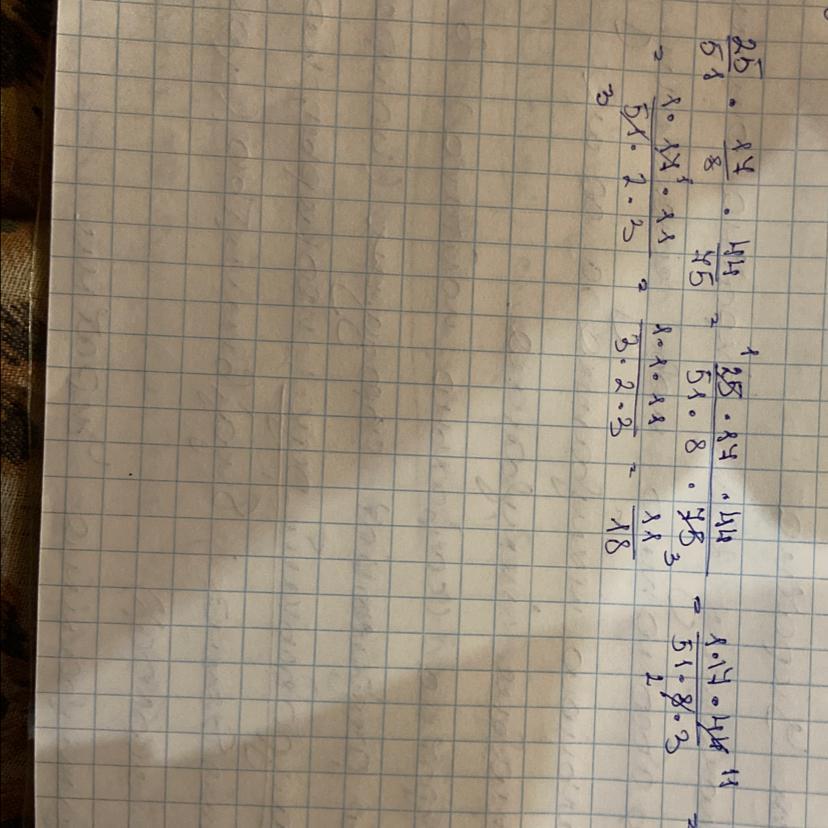 25/51 · 17/8 · 44/75 = 25¹ · 17 · 44 / 51 · 8 · 75₃ = 1 · 17 · 44¹¹ / 51 · 8₂ · 3 =
= 1 · 17¹ · 11 / 51₃ · 2 · 3 = 1 · 1 · 11 / 3 · 2 · 3 = 11/18